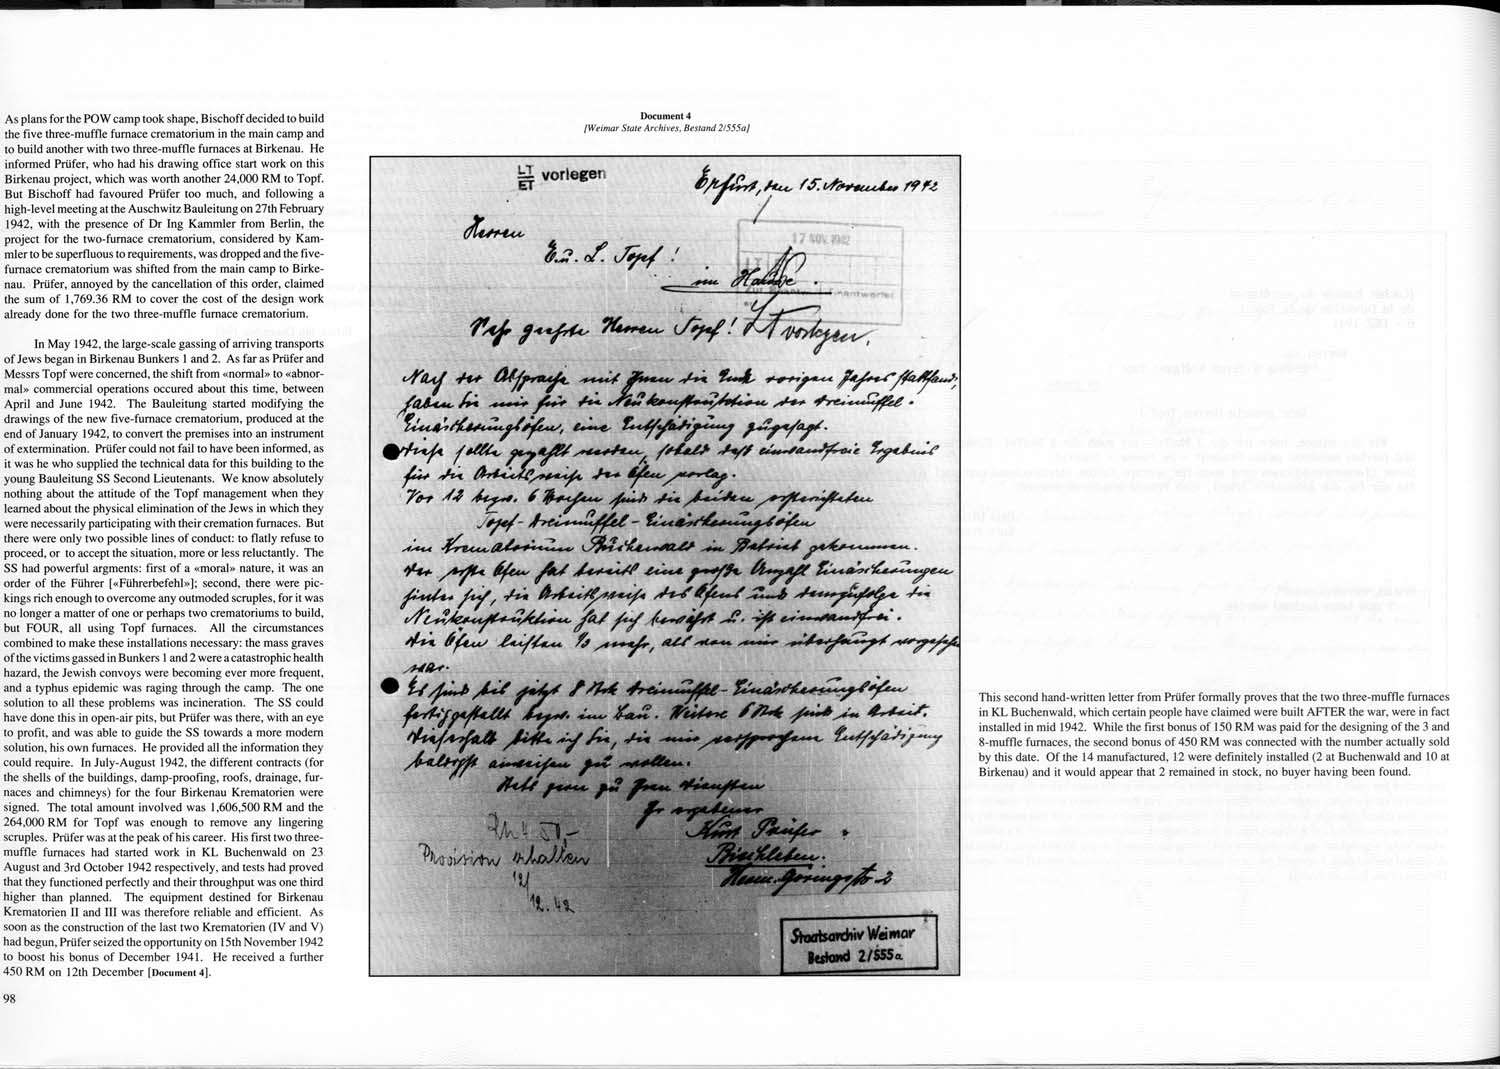 As plans for the POW camp took shape, Bischoff decided to build
the five three-muffle furnace crematorium in the main camp and
to build another with two three-muffle furnaces at Birkenau. He
informed Prüfer, who had his drawing office start work on this
Birkenau project, which was worth another 24,000 RM to Topf.
But Bischoff had favoured Prüfer too much, and following a
high-level meeting at the Auschwitz Bauleitung on 27th February
1942, with the presence of Dr Ing Kammler from Berlin, the
project for the two-furnace crematorium, considered by Kam-
mler to be superfluous to requirements, was dropped and the five-
furnace crematorium was shifted from the main camp to Birke-
nau. Prüfer, annoyed by the cancellation of this order, claimed
the sum of 1,769.36 RM to cover the cost of the design work
already done for the two three-muffle furnace crematorium.
In May 1942, the large-scale gassing of arriving transports
of Jews began in Birkenau Bunkers 1 and 2. As far as Prüfer and
Messrs Topf were concerned, the shift from «normal» to «abnor-
mal» commercial operations occured about this time, between
April and June 1942. The Bauleitung started modifying the
drawings of the new five-furnace crematorium, produced at the
end of January 1942, to convert the premises into an instrument
of extermination. Prüfer could not fail to have been informed, as
it was he who supplied the technical data for this building to the
young Bauleitung SS Second Lieutenants. We know absolutely
nothing about the attitude of the Topf management when they
learned about the physical elimination of the Jews in which they
were necessarily participating with their cremation furnaces. But
there were only two possible lines of conduct: to flatly refuse to
proceed, or to accept the situation, more or less reluctantly. The
SS had powerful argments: first of a «moral» nature, it was an
order of the Führer [«Führerbefehl»]; second, there were pic-
kings rich enough to overcome any outmoded scruples, for it was
no longer a matter of one or perhaps two crematoriums to build,
but FOUR, all using Topf furnaces. All the circumstances
combined to make these installations necessary: the mass graves
of the victims gassed in Bunkers 1 and 2 were a catastrophic health
hazard, the Jewish convoys were becoming ever more frequent,
and a typhus epidemic was raging through the camp. The one
solution to all these problems was incineration. The SS could
have done this in open-air pits, but Prüfer was there, with an eye
to profit, and was able to guide the SS towards a more modern
solution, his own furnaces. He provided all the information they
could require. In July-August 1942, the different contracts (for
the shells of the buildings, damp-proofing, roofs, drainage, fur-
naces and chimneys) for the four Birkenau Krematorien were
signed. The total amount involved was 1,606,500 RM and the
264,000 RM for Topf was enough to remove any lingering
scruples. Prüfer was at the peak of his career. His first two three-
muffle furnaces had started work in KL Buchenwald on 23
August and 3rd October 1942 respectively, and tests had proved
that they functioned perfectly and their throughput was one third
higher than planned. The equipment destined for Birkenau
Krematorien II and III was therefore reliable and efficient. As
soon as the construction of the last two Krematorien (IV and V)
had begun, Prüfer seized the opportunity on 15th November 1942
to boost his bonus of December 1941. He received a further
450 RM on 12th December [Document 4].
98
Document 4
[Weimar State Archives, Bestand 2/555a]
LT
ET vorlegen
Erfurt, den 15. November 1942
17 NOV. 1942
Herren
E. u. L. Topf !
im Hause.
Sehr geehrte Herren Topf! LT vorlegen.
Nach der Absprache mit Ihnen die Ende vorigen Jahres stattfand,
haben Sie mir für die Neukonstruktion der Dreimuffel-
Einäscherungsöfen, eine Entschädigung zugesagt.
Diese sollte gezahlt werden, sobald das einwandfreie Ergebnis
für die Arbeitsweise der Öfen vorlag.
Vor 12 bezw. 6 Wochen sind die beiden ersterichteten
Topf-Dreimuffel-Einäscherungsöfen
im Krematorium Buchenwald in Betrieb gekommen.
Der erste Ofen hat bereits eine große Anzahl Einäscherungen
hinter sich, die Arbeitsweise des Ofens und demzufolge die
Neukonstruktion hat sich bewährt u. ist einwandfrei.
Die Öfen leisten 1/3 mehr, als von mir überhaupt vorgesehen
war.
Es sind bis jetzt 8 Stck Dreimuffel-Einäscherungsöfen
fertiggestellt bezw. im Bau. Weitere 6 Stck sind in Arbeit.
Dieserhalb bitte ich Sie, die mir versprochene Entschädigung
baldigst anweisen zu wollen.
Stets gern zu Ihren Diensten
Ihr ergebener
Kurt Prüfer
Bischleben.
Herm. Göringstr. 2
450,-
Provision erhalten
12/
12. 42
Staatsarchiv Weimar
Bestand 2/555a
This second hand-written letter from Prüfer formally proves that the two three-muffle furnaces
in KL Buchenwald, which certain people have claimed were built AFTER the war, were in fact
installed in mid 1942. While the first bonus of 150 RM was paid for the designing of the 3 and
8-muffle furnaces, the second bonus of 450 RM was connected with the number actually sold
by this date. Of the 14 manufactured, 12 were definitely installed (2 at Buchenwald and 10 at
Birkenau) and it would appear that 2 remained in stock, no buyer having been found.